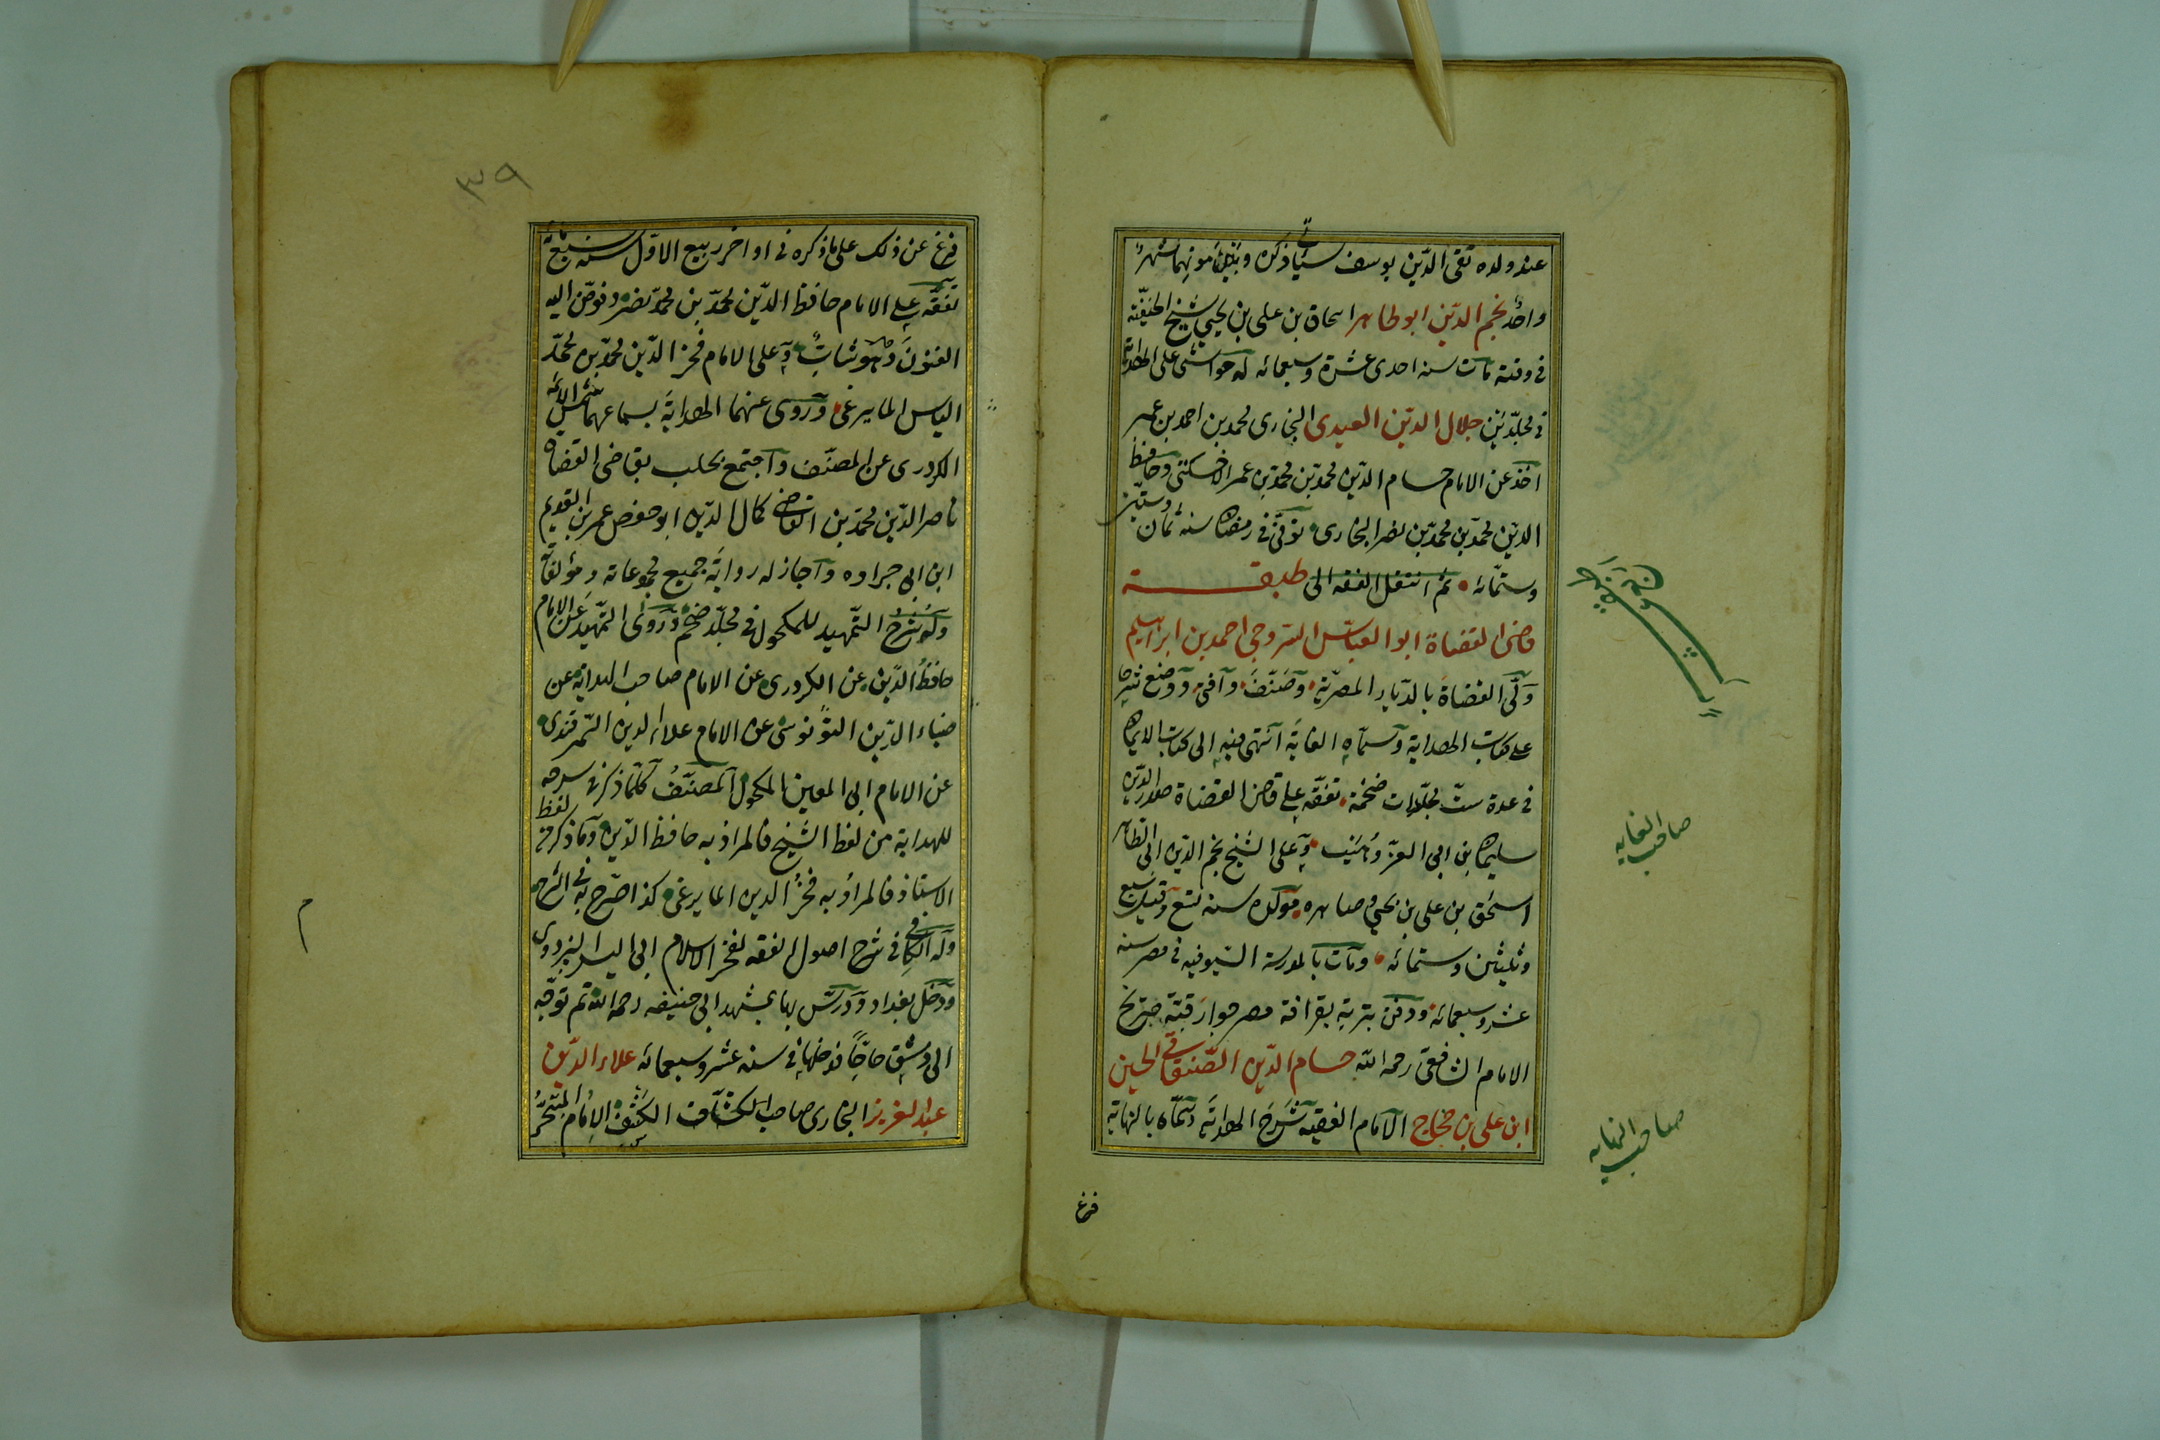 عند ولده تقى الدّين يوسف سيأتى ذكره وبين موتهما شهر
واحد نجم الدّين ابو طاهر اسحاق بن على بن يحيى شيخ الحنفيّة
فى وقته مات سنه احدى عشرة وسبعمائه له حواشى على الهداية
فى مجلّدين جلال الدّين العيدى البخارى محمد بن احمد بن عمر
اخذ عن الامام حسام الدّين محمّد بن محمّد بن عمر الاخسكثى وحافظ
الدّين محمّد بن محمّد بن نصر البخارى توفّى فى رمضان سنة ثمان وستّين
وستّمائه ثم انتقل الفقه الى طبقة
قاضى القضاة ابو العبّاس السّروجى احمد بن ابراهيم
ولّى القضاة بالدّيار المصريّة وصنّف وافتى ووضع شرحا
على كتاب الهداية وسمّاه الغاية انتهى فيه الى كتاب الايمان
فى عدة ستّ مجلّدات ضخمة تفقّه على قاضى القضاة صدر الدّين
سليمان بن ابى العزّ وهيب وعلى الشيخ نجم الدّين ابى الطاهر
اسحق بن على بن يحيى وصاهره مولده سنه تسع وقيل سبع
وثلثين وستمائه ومات بالمدرسة السّيوفيه فى مصر سنه
عشر وسبعمائه ودفن بتربة بقرافة مصر جوار قبّة ضريح
الامام الشافعىّ رحمه اللّه حسام الدّين الصّنغاقى الحسين
ابن على بن حجاج الامام الفقيه شرح الهداية وسمّاه بالنهاية
فرغ
صاحب الغايه
صاحب النهايه
٣٩
فرغ عن ذلك على ماذكره فى اواخر ربيع الاوّل سنه سبعمائه
تفقّه على الامام حافظ الدّين محمّد بن محمّد نصر وفوّض اليه
الفتوى وهو شابّ وعلى الامام فخر الدّين محمّد بن محمّد
الياس المايمرغى وروى عنهما الهداية بسماعهما شمس الائمّه
الكردرى عن المصنّف واجتمع بحلب بقاضى القضاه
ناصر الدّين محمّد بن القاضى كمال الدّين ابو حفص عمر بن القديم
ابن ابى جراده واجاز له رواية جميع مجموعاته ومؤلفاته
وله شرح التّمهيد للمكحول فى مجلّد ضخم وروى التّمهيد عن الامام
حافظ الدّين عن الكردرى عن الامام صاحب الهداية عن
ضياء الدّين النّونوسى عن الامام علاء الدين السّمرقندى
عن الامام ابى المعين المكحول المصنّف كلّما ذكر فى شرحه
للهداية من لفظ الشيخ فالمراد به حافظ الدّين وما ذكر من لفظ
الاستاذ فالمراد به فخر الدين المايمرغى كذا صرّح به فى الشرح
وله الكافى فى شرح اصول الفقه لفخر الاسلام ابى اليسر البزدوى
ودخل بغداد ودرّس بها بمشهد ابى حنيفه رحمه اللّه ثم توجّه
الى دمشق حاجّا فدخلها فى سنه عشر وسبعمائه علاء الدّين
عبد العزيز البخارى صاحب الكشّاف الكشف الامام المتبحّر